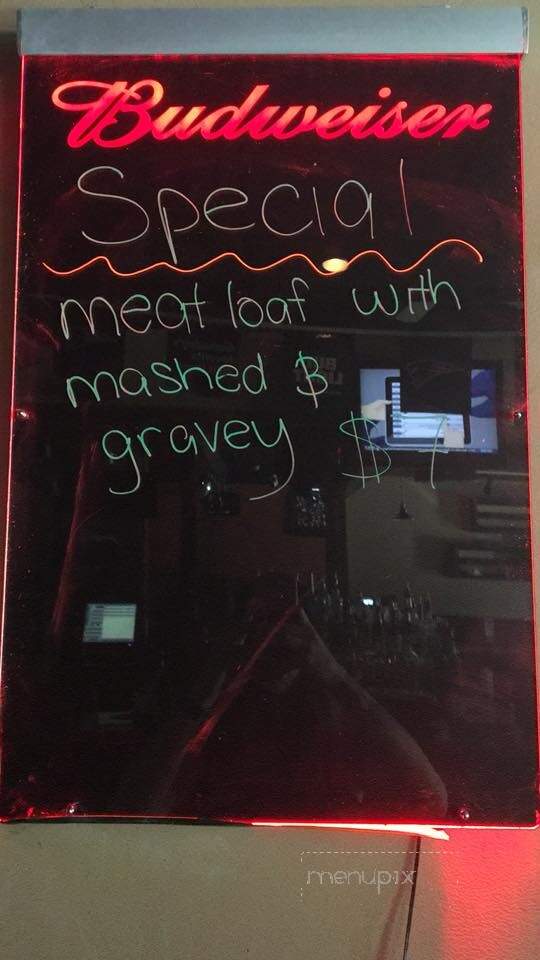 Budweiser
Special
meat loaf with
mashed &
gravey $7
menupix